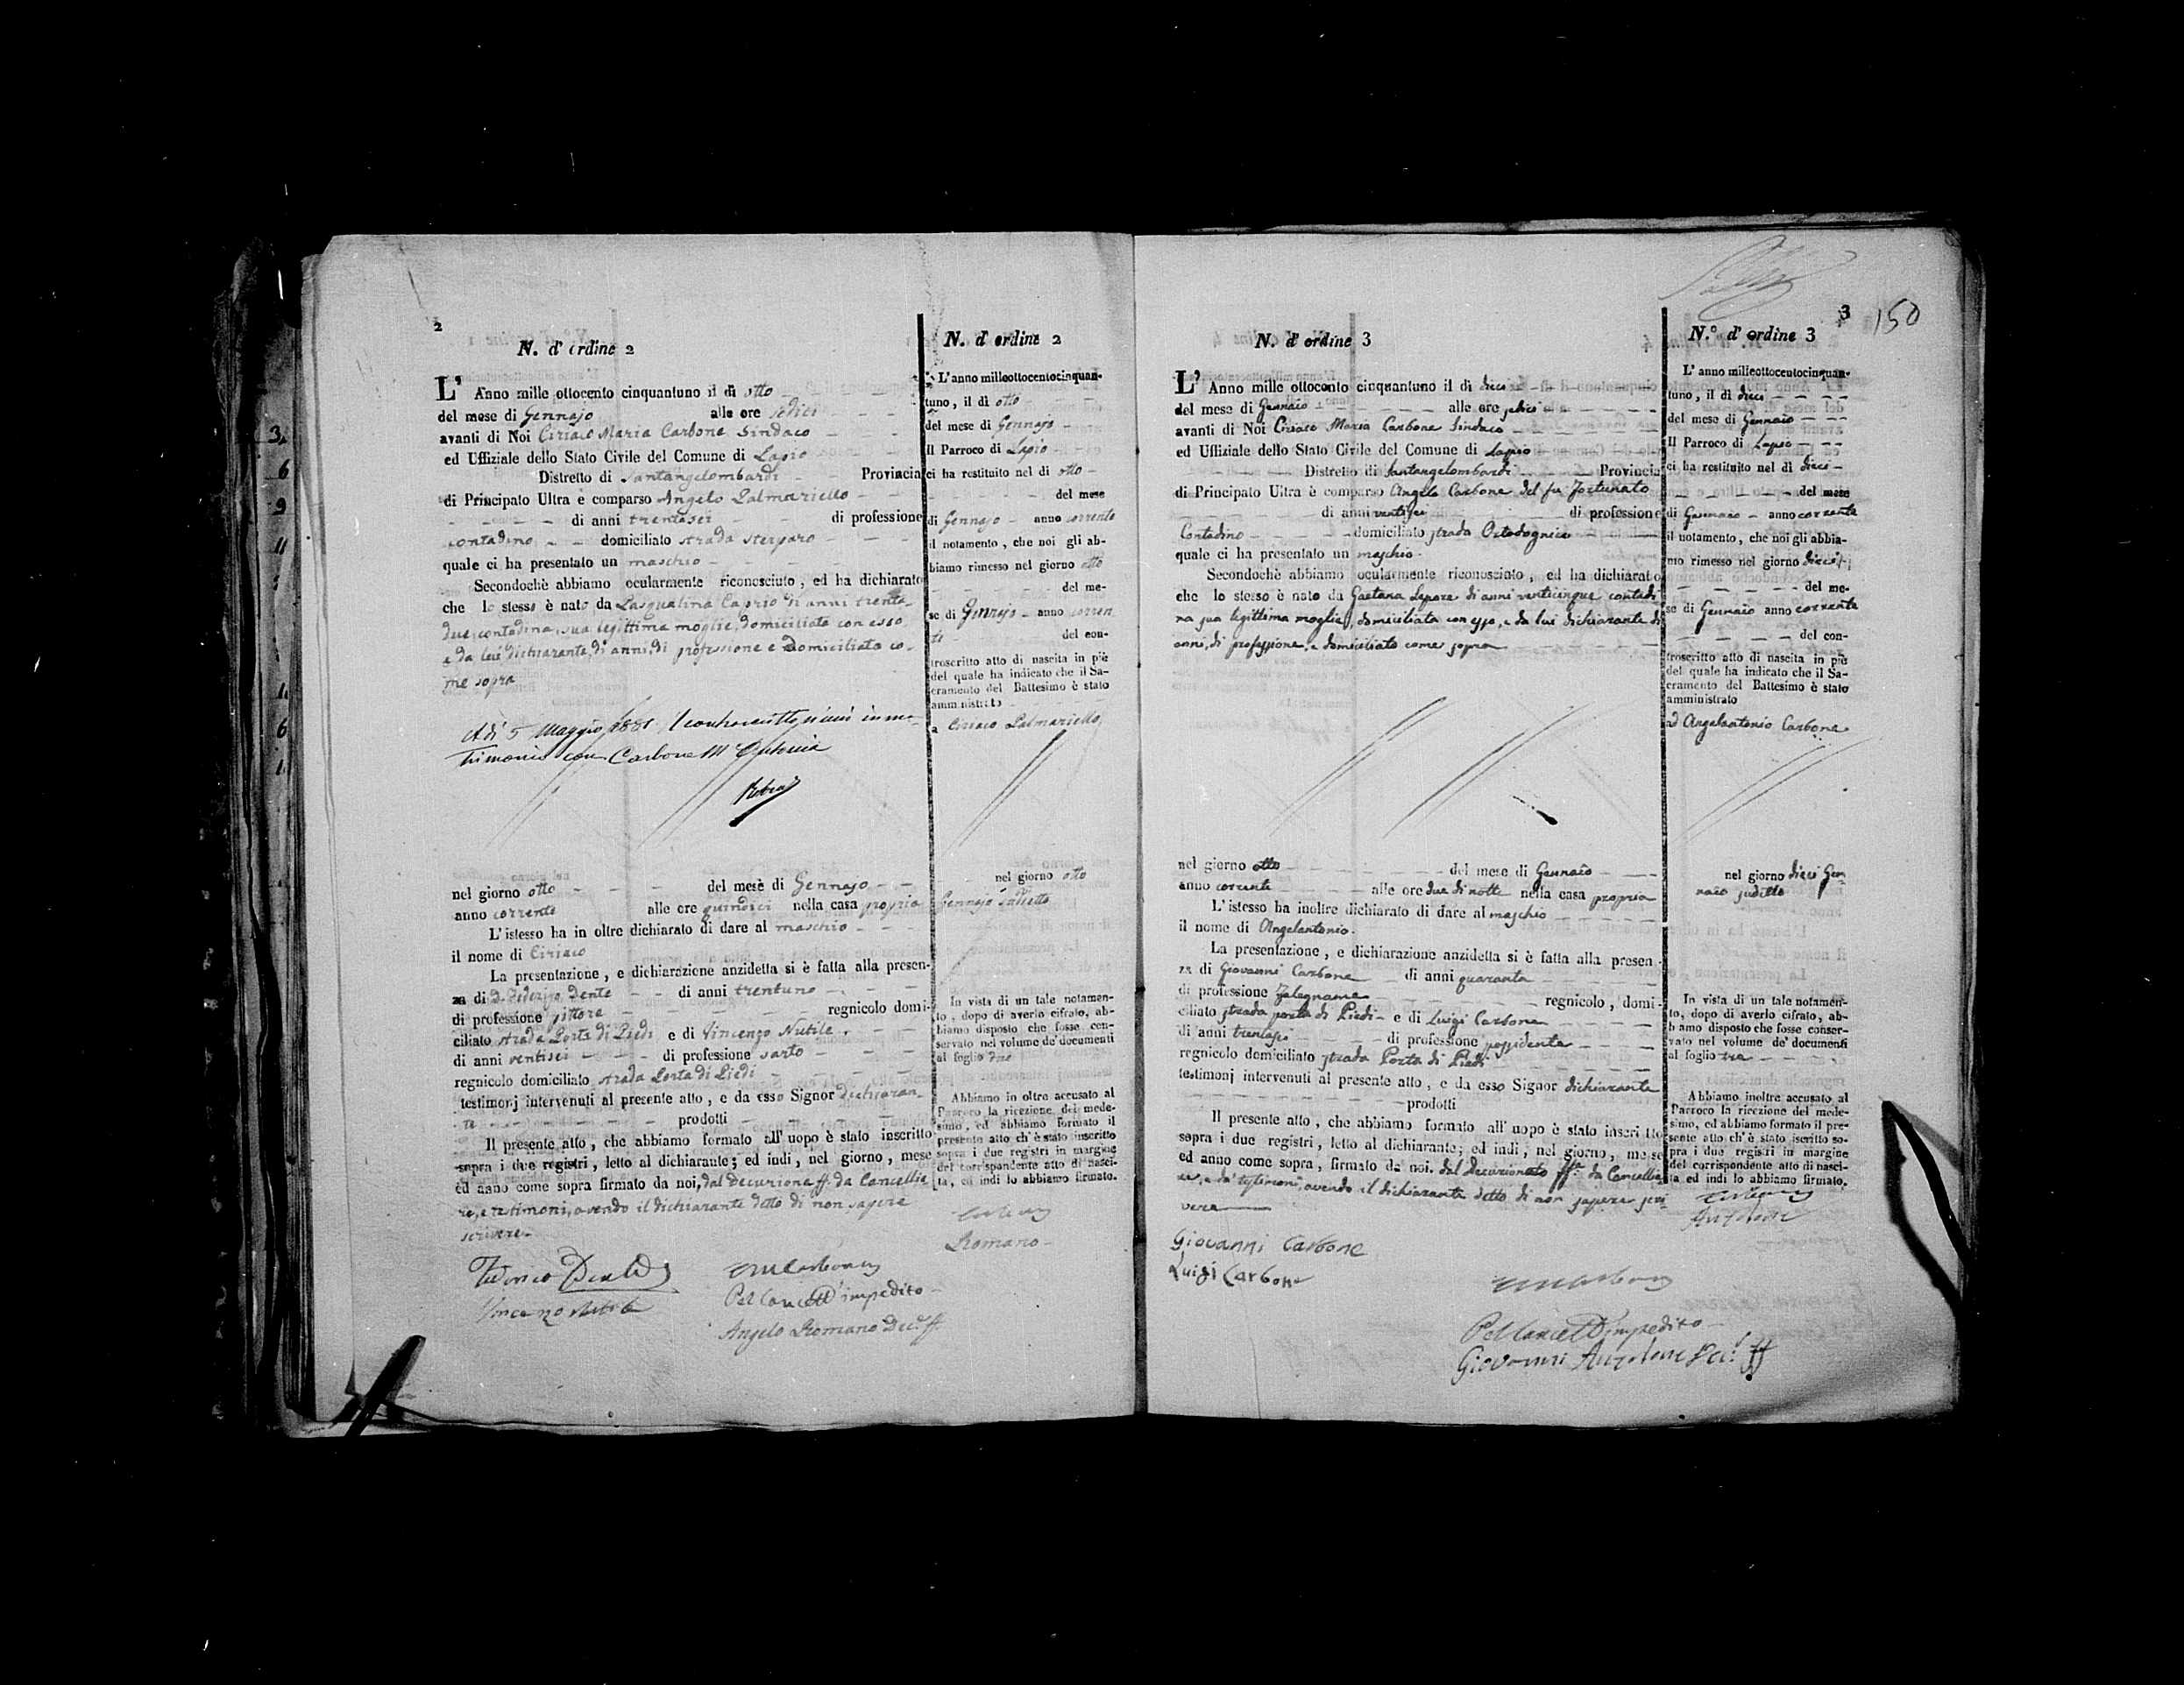 2
N. d' ordine 2
L' Anno mille ottocento cinquantuno il dì otto
del mese di Gennajo alle ore sedici
avanti di Noi Ciriaco Maria Carbone Sindaco
ed Uffiziale dello Stato Civile del Comune di Lapio
Distretto di Santangelombardi Provincia
di Principato Ultra è comparso Angelo Palmariello
di anni trentasei di professione
contadino domiciliato strada Sterparo
quale ci ha presentato un maschio
Secondochè abbiamo ocularmente riconosciuto, ed ha dichiarato
che lo stesso è nato da Pasqualina Caprio di anni trenta-
due, contadina, sua legittima moglie, domiciliata con esso,
e da lui dichiarante, di anni, di professione e domiciliato co-
me sopra
Adì 5 Maggio 1881 il controscritto si unì in ma-
trimonio con Carbone M. Antonia
nel giorno otto del mese di Gennajo
anno corrente alle ore quindici nella casa propria
L' istesso ha in oltre dichiarato di dare al maschio
il nome di Ciriaco
La presentazione, e dichiarazione anzidetta si è fatta alla presen-
za di D. Federigo Dente di anni trentuno
di professione pittore regnicolo domi-
ciliato strada Porta di Piedi e di Vincenzo Nutile
di anni ventisei di professione sarto
regnicolo domiciliato strada Porta di Piedi
testimonj intervenuti al presente atto, e da esso Signor dichiaran-
te prodotti
Il presente atto, che abbiamo formato all' uopo è stato inscritto
sopra i due registri, letto al dichiarante; ed indi, nel giorno, mese
ed anno come sopra firmato da noi, dal Decurione ff. da Cancellie
re, e testimoni, avendo il dichiarante detto di non sapere
scrivere.
Federico Dente
Vincenzo Nutile
Pel Cancell. impedito
Angelo Romano Dec. ff.
N. d' ordine 2
L' anno milleottocentocinquan-
tuno, il dì otto
del mese di Gennajo
Il Parroco di Lapio
ci ha restituito nel dì otto
del mese
di Gennajo anno corrente
il notamento, che noi gli ab-
biamo rimesso nel giorno otto
del me-
se di Gennajo anno corren
te del con-
troscritto atto di nascita in piè
del quale ha indicato che il Sa-
cramento del Battesimo è stato
amministrato
a Ciriaco Palmariello
nel giorno otto
Gennajo suddetto
In vista di un tale notamen-
to, dopo di averlo cifrato, ab-
biamo disposto che fosse con-
servato nel volume de' documenti
al foglio due
Abbiamo in oltre accusato al
Parroco la ricezione del mede-
simo, ed abbiamo formato il
presente atto ch' è stato inscritto
sopra i due registri in margine
del corrispondente atto di nasci-
ta, ed indi lo abbiamo firmato.
Romano
3
150
N. d' ordine 3
L' Anno mille ottocento cinquantuno il dì dieci
del mese di Gennaio alle ore sedici
avanti di Noi Ciriaco Maria Carbone Sindaco
ed Uffiziale dello Stato Civile del Comune di Lapio
Distretto di Santangelombardi Provincia
di Principato Ultra è comparso Angelo Carbone del fu Fortunato
di anni ventisei di professione
Contadino domiciliato strada
quale ci ha presentato un maschio
Secondochè abbiamo ocularmente riconosciuto, ed ha dichiarato
che lo stesso è nato da Gaetana Lepore di anni venticinque contadi
na sua legittima moglie, domiciliata con esso, e da lui dichiarante di
anni, di professione, e domiciliato come sopra
nel giorno otto del mese di Gennaio
anno corrente alle ore due di notte nella casa propria
L' istesso ha inoltre dichiarato di dare al maschio
il nome di Angelantonio.
La presentazione, e dichiarazione anzidetta si è fatta alla presen-
za di Giovanni Carbone di anni quaranta
di professione Falegname regnicolo, domi-
ciliato strada porta di Piedi e di Luigi Carbone
di anni trentasei di professione possidente
regnicolo domiciliato strada Porta di Piedi
testimonj intervenuti al presente atto, e da esso Signor dichiarante
prodotti
Il presente atto, che abbiamo formato all' uopo è stato inscritto
sopra i due registri, letto al dichiarante; ed indi, nel giorno, mese
ed anno come sopra, firmato da noi. dal Decurionato ff. da Cancellie
re, e da' testimoni, avendo il dichiarante detto di non sapere scri
vere
Giovanni Carbone
Luigi Carbone
Pel Cancell. impedito
Giovanni ff
N.° d' ordine 3
L' anno milleottocentocinquan-
tuno, il dì dieci
del mese di Gennaio
Il Parroco di Lapio
ci ha restituito nel dì dieci
del mese
di Gennaio anno corrente
il notamento, che noi gli abbia-
mo rimesso nel giorno dieci
del me-
se di Gennaio anno corrente
del con-
troscritto atto di nascita in piè
del quale ha indicato che il Sa-
cramento del Battesimo è stato
amministrato
ad Angelantonio Carbone
nel giorno dieci Gen-
naio suddetto
In vista di un tale notamen-
to, dopo di averlo cifrato, ab-
biamo disposto che fosse conser-
vato nel volume de' documenti
al foglio tre
Abbiamo inoltre accusato al
Parroco la ricezione del mede-
simo, ed abbiamo formato il pre-
sente atto ch' è stato iscritto so-
pra i due registri in margine
del corrispondente atto di nasci-
ta ed indi lo abbiamo firmato.